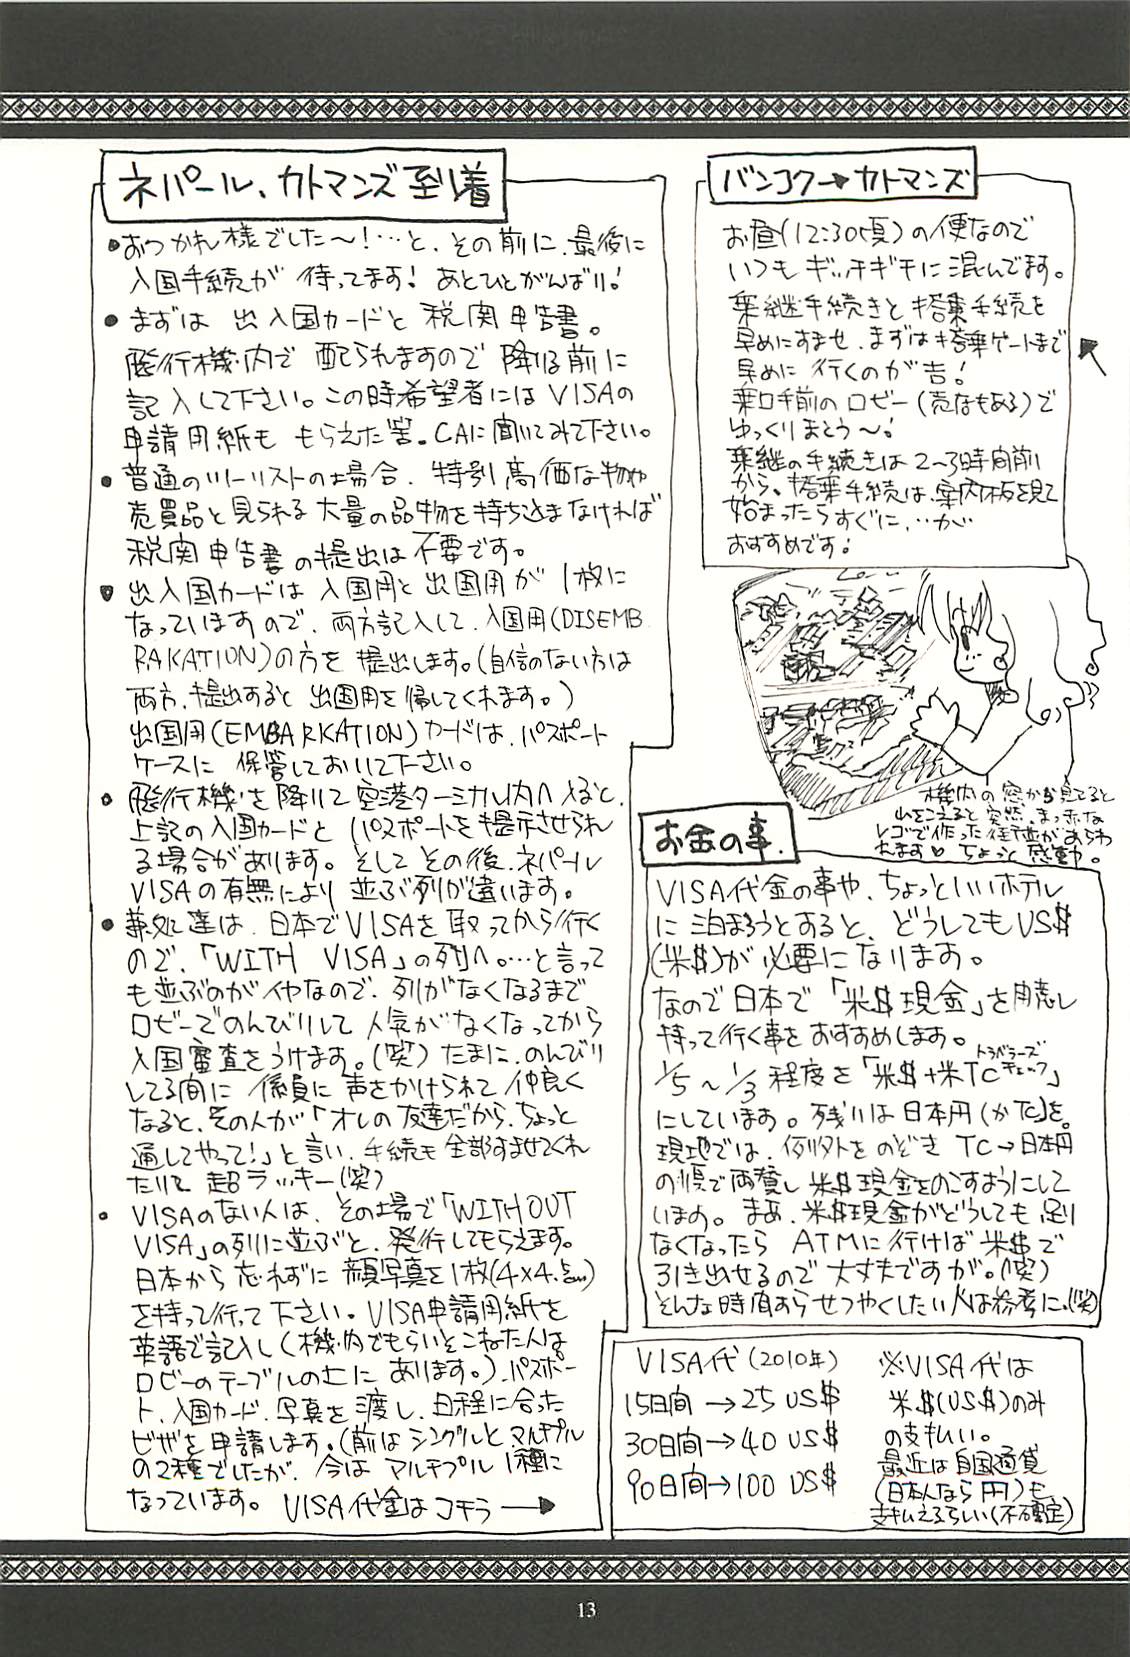 バンコク→カトマンズ
お昼(12:30頃)の便なので
いつもギッチギチに混んでます。
乗継手続きと搭乗手続を
早めにすませ、まずは搭乗ゲートまで
早めに行くのが吉!
乗口手前のロビー(売店もある)で
ゆっくりまとう〜!
乗継の手続きは2〜3時間前
から、搭乗手続は、案内板を見て
始まったらすぐに…が
おすすめです!
機内の窓から見てると
山をこえると突然、まっ赤な
レゴで作った街並があらわ
れます♡ ちょっと感動。
ネパール、カトマンズ到着
●おつかれ様でした〜!…と、その前に、最後に
入国手続が待ってます!あとひとがんばり!
●まずは 出入国カードと 税関申告書。
飛行機内で 配られますので 降りる前に
記入して下さい。この時希望者にはVISAの
申請用紙も もらえた筈。CAに聞いてみて下さい。
●普通のツーリストの場合、特別高価な物や
売買品と見られる大量の品物を持ち込まなければ
税関申告書の提出は不要です。
●出入国カードは 入国用と出国用が 1枚に
なっていますので、両方記入して、入国用(DISEMB
RAKATION)の方を提出します。(自信のない方は
両方、提出すると 出国用を帰してくれます。)
出国用(EMBARKATION)カードは、パスポート
ケースに 保管しておいて下さい。
●飛行機を降りて空港ターミナル内へ入ると、
上記の入国カードとパスポートを提示させられ
る場合があります。そしてその後、ネパール
VISAの有無により 並ぶ列が違います。
●達は、日本でVISAを取ってから行く
ので、「WITH VISA」の列へ。…と言って
も並ぶのがイヤなので、列がなくなるまで
ロビーでのんびりして 人気がなくなってから
入国審査をうけます。(笑) たまに、のんびり
してる間に 係員に声をかけられて 仲良く
なると、その人が「オレの友達だから、ちょっと
通してやって!」と言い、手続も全部すませてくれ
たりで 超ラッキー(笑)
●VISAのない人は、その場で「WITHOUT
VISA」の列に並ぶと、発行してもらえます。
日本から忘れずに 顔写真を1枚(4×4.5cm)
を持って行って下さい。VISA申請用紙を
英語で記入し(機内でもらいそこねた人は
ロビーのテーブルの上に あります。)、パスポー
ト、入国カード、写真を渡し、日程に合った
ビザを申請します。(前はシングルとマルチプル
の2種でしたが、今はマルチプル1種に
なっています。 VISA代金はコチラ→
お金の事。
VISA代金の事や、ちょっといいホテル
に泊まろうとすると、どうしてもUS$
(米$)が必要になります。
なので日本で「米$現金」を用意し
持って行く事をおすすめします。
1/5〜1/3程度を「米$+米TC トラベラーズチェック」
にしています。残りは日本円(かTC)を。
現地では、例外をのぞき TC→日本円
の順で両替し 米$現金をのこすようにして
います。まあ、米$現金がどうしても足り
なくなったら ATMに行けば米$で
引き出せるので大丈夫ですが。(笑)
そんな時間あらせつやくしたい人は参考に。(笑)
VISA代(2010年)
15日間→25 US$
30日間→40 US$
90日間→100 US$
※VISA代は
米$(US$)のみ
の支払い。
最近は自国通貨
(日本人なら円)も
支払えるらしい(不確定)
13